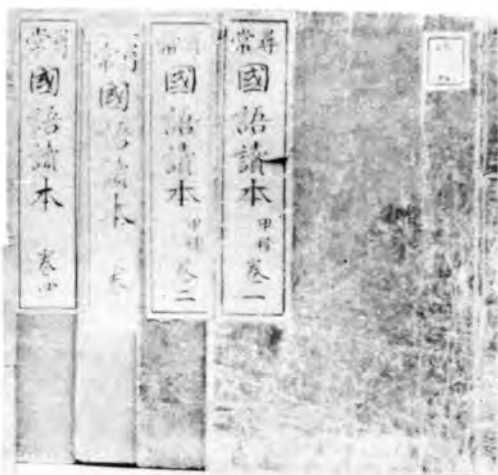 尋常國語讀本 甲種 卷一
尋常國語讀本 甲種 卷二
尋常國語讀本 卷
尋常國語讀本 卷四